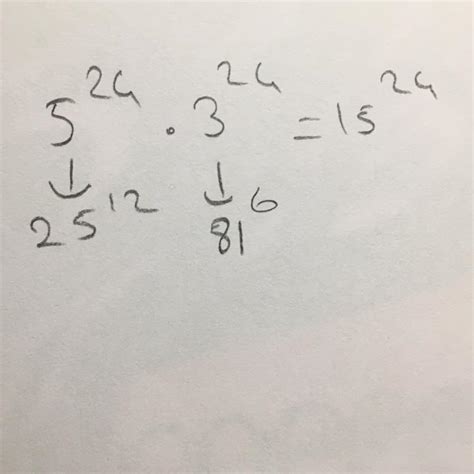 5²⁴ · 3²⁴ = 15²⁴
↓ ↓
25¹² 81⁶